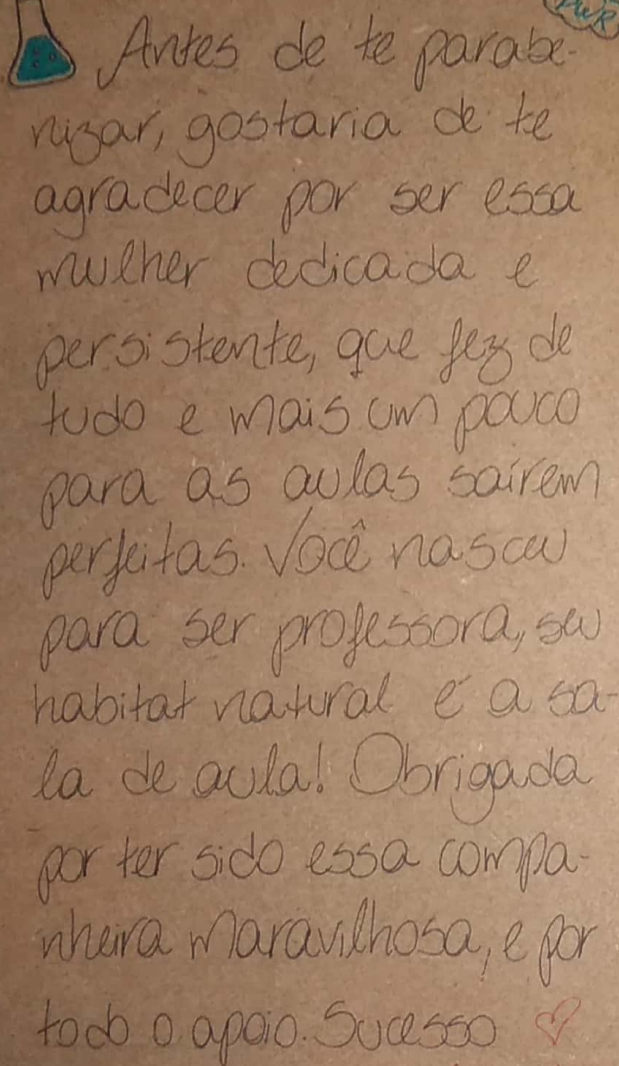 PWR
Antes de te parabe-
nizar, gostaria de te
agradecer por ser essa
mulher dedicada e
persistente, que fez de
tudo e mais um pouco
para as aulas saírem
perfeitas. Você nasceu
para ser professora, seu
habitat natural é a sa-
la de aula! Obrigada
por ter sido essa compa-
nheira maravilhosa, e por
todo o apoio. Sucesso